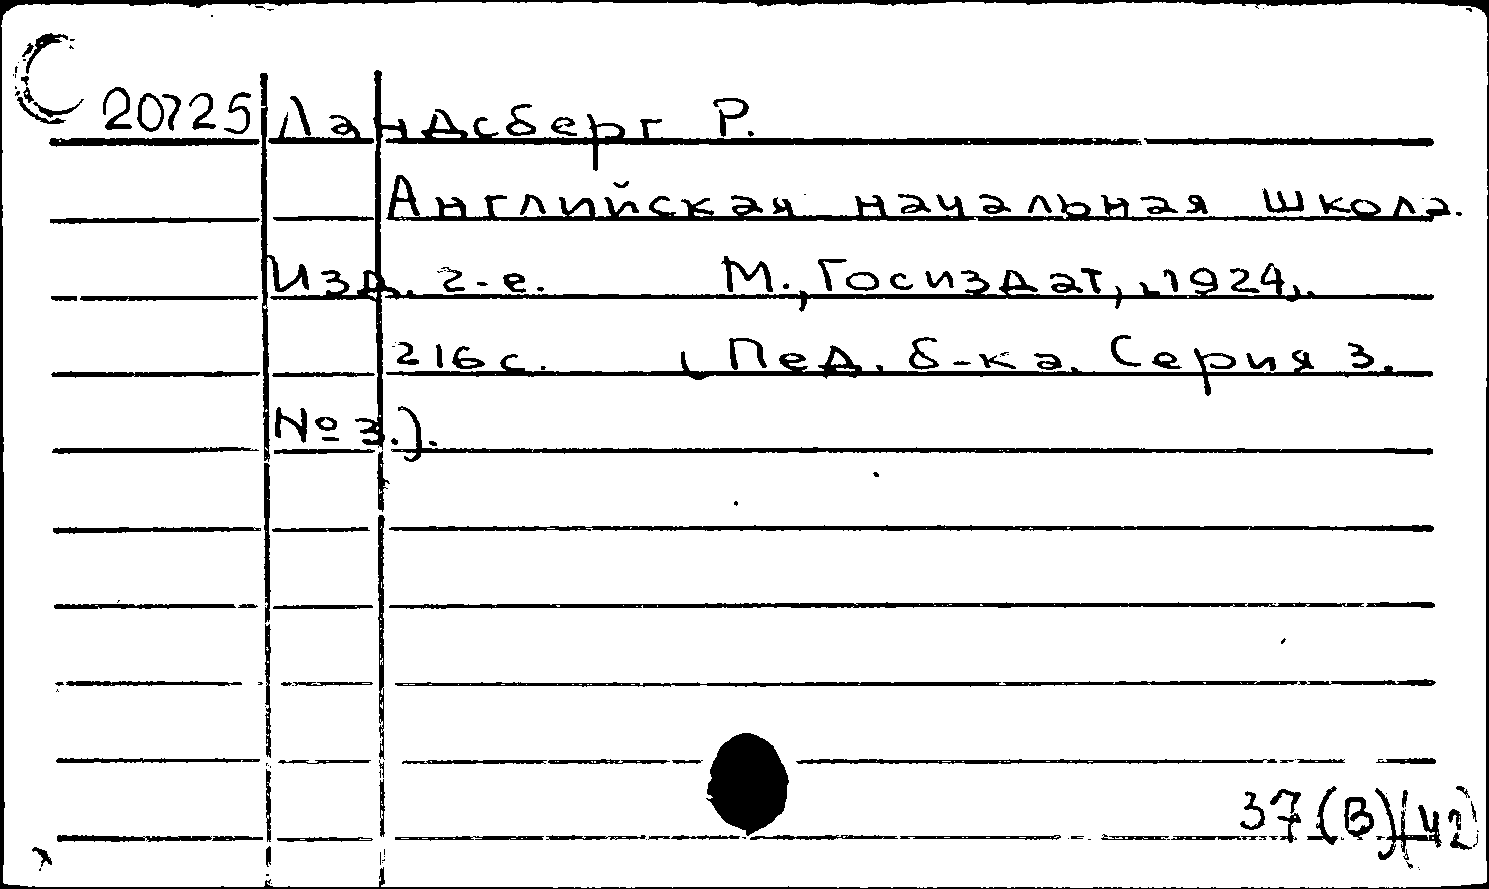 20725 Ландсберг Р.
Английская начальная школа.
Изд. 2-е. М., Госиздат, 1924,.
216 с. (Пед. б-ка. Серия 3.
№ 3.).
37(В)(42)